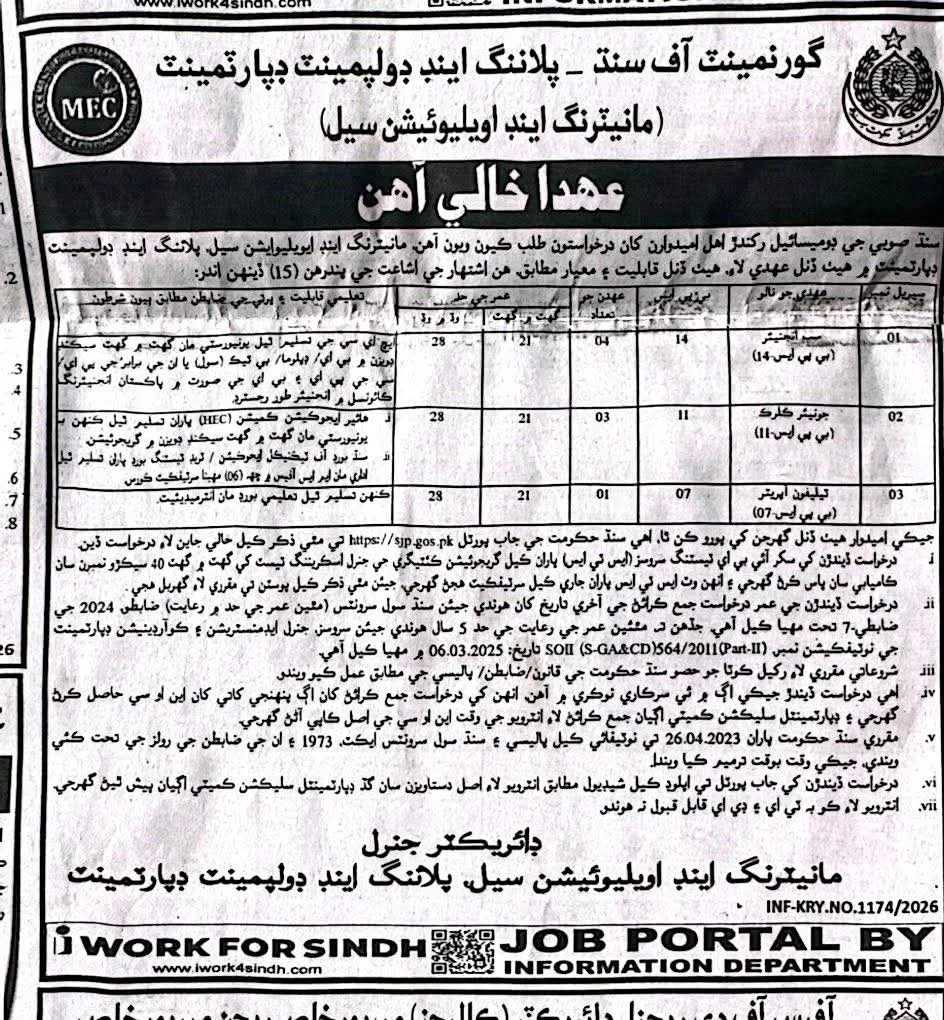 www.iwork4sindh.com
گورنمينٽ آف سنڌ – پلاننگ اينڊ ڊولپمينٽ ڊپارٽمينٽ
(مانيٽرنگ اينڊ اويليوئيشن سيل)
MEC
عهدا خالي آهن
سنڌ صوبي جي ڊوميسائيل رکندڙ اهل اميدوارن کان درخواستون طلب ڪيون ويون آهن. مانيٽرنگ اينڊ ايويليوايشن سيل، پلاننگ اينڊ ڊولپمينٽ
ڊپارٽمينٽ ۾ هيٺ ڏنل عهدي لاءِ، هيٺ ڏنل قابليت ۽ معيار مطابق، هن اشتهار جي اشاعت جي پندرهن (15) ڏينهن اندر:
سيريل نمبر عهدي جو نالو بي پي ايس عهدن جو تعداد عمر جي حد تعليمي قابليت ۽ ڀرتي جي ضابطن مطابق ٻيون شرطون
گهٽ ۾ گهٽ وڌ ۾ وڌ
01 سب انجنيئر (بي پي ايس-14) 14 04 21 28 ايڇ اي سي جي تسليم ٿيل يونيورسٽي مان گهٽ ۾ گهٽ سيڪنڊ
ڊويزن ۾ بي اي/ ڊپلوما/ بي ٽيڪ (سول) يا ان جي برابر جي پي اي/
سي جي پي اي ۽ بي اي جي صورت ۾ پاڪستان انجنيئرنگ
ڪائونسل ۾ انجنيئر طور رجسٽرڊ.
02 جونيئر ڪلرڪ (بي پي ايس-11) 11 03 21 28 i. هائير ايجوڪيشن ڪميشن (HEC) پاران تسليم ٿيل ڪنهن به
يونيورسٽي مان گهٽ ۾ گهٽ سيڪنڊ ڊويزن ۾ گريجوئيشن.
ii. سنڌ بورڊ آف ٽيڪنيڪل ايجوڪيشن / ٽريڊ ٽيسٽنگ بورڊ پاران تسليم ٿيل
اداري مان ايم ايس آفيس ۾ ڇهه (06) مهينا سرٽيفڪيٽ ڪورس.
03 ٽيليفون آپريٽر (بي پي ايس-07) 07 01 21 28 ڪنهن تسليم ٿيل تعليمي بورڊ مان انٽرميڊيئيٽ.
جيڪي اميدوار هيٺ ڏنل گهرجن کي پورو ڪن ٿا، اهي سنڌ حڪومت جي جاب پورٽل https://sjp.gos.pk تي مٿي ذڪر ڪيل خالي جاين لاءِ درخواست ڏين.
i. درخواست ڏيندڙن کي سکر آئي بي اي ٽيسٽنگ سروسز (ايس ٽي ايس) پاران ڪيل گريجوئيشن ڪئٽيگري جي جنرل اسڪريننگ ٽيسٽ کي گهٽ ۾ گهٽ 40 سيڪڙو نمبرن سان
ڪاميابي سان پاس ڪرڻ گهرجي ۽ انهن وٽ ايس ٽي ايس پاران جاري ڪيل سرٽيفڪيٽ هجڻ گهرجي، جيئن مٿي ذڪر ڪيل پوسٽن تي مقرري لاءِ گهربل هجي.
ii. درخواست ڏيندڙن جي عمر درخواست جمع ڪرائڻ جي آخري تاريخ کان هوندي جيئن سنڌ سول سرونٽس (مٿين عمر جي حد ۾ رعايت) ضابطي 2024 جي
ضابطي-7 تحت مهيا ڪيل آهي. جڏهن ته مٿئين عمر جي رعايت جي حد 5 سال هوندي جيئن سروسز، جنرل ايڊمنسٽريشن ۽ ڪوآرڊينيشن ڊپارٽمينٽ
جي نوٽيفڪيشن نمبر، SOII (S-GA&CD)564/2011(Part-II) تاريخ: 06.03.2025 ۾ مهيا ڪيل آهي.
iii. شروعاتي مقرري لاءِ رکيل ڪوٽا جو حصو سنڌ حڪومت جي قانون/ضابطن/ پاليسي جي مطابق عمل ڪيو ويندو.
iv. اهي درخواست ڏيندڙ جيڪي اڳ ۾ ئي سرڪاري نوڪري ۾ آهن، انهن کي درخواست جمع ڪرائڻ کان اڳ پنهنجي کاتي کان اين او سي حاصل ڪرڻ
گهرجي ۽ ڊپارٽمينٽل سليڪشن ڪميٽي اڳيان جمع ڪرائڻ لاءِ انٽرويو جي وقت اين او سي جي اصل ڪاپي آڻڻ گهرجي.
v. مقرري سنڌ حڪومت پاران 26.04.2023 تي نوٽيفائي ڪيل پاليسي ۽ سنڌ سول سرونٽس ايڪٽ، 1973 ۽ ان جي ضابطن جي رولز جي تحت ڪئي
ويندي، جيڪي وقت بوقت ترميم ڪيا ويندا.
vi. درخواست ڏيندڙن کي جاب پورٽل تي اپلوڊ ڪيل شيڊيول مطابق انٽرويو لاءِ اصل دستاويزن سان گڏ ڊپارٽمينٽل سليڪشن ڪميٽي اڳيان پيش ٿيڻ گهرجي.
vii. انٽرويو لاءِ ڪو به ٽي اي ۽ ڊي اي قابل قبول نه هوندو.
ڊائريڪٽر جنرل
مانيٽرنگ اينڊ اويليوئيشن سيل، پلاننگ اينڊ ڊولپمينٽ ڊپارٽمينٽ
INF-KRY.NO.1174/2026
i WORK FOR SINDH
www.iwork4sindh.com
JOB PORTAL BY
INFORMATION DEPARTMENT